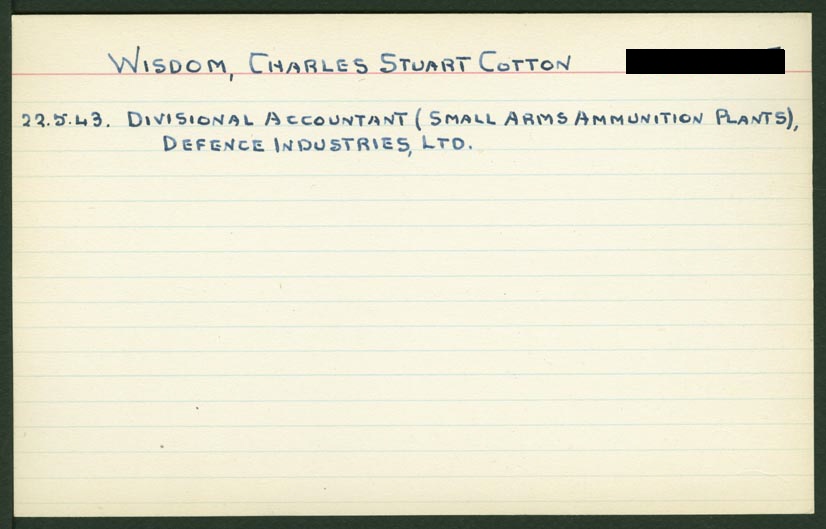 WISDOM, CHARLES STUART COTTON
22.5.43. DIVISIONAL ACCOUNTANT (SMALL ARMS AMMUNITION PLANTS),
DEFENCE INDUSTRIES, LTD.